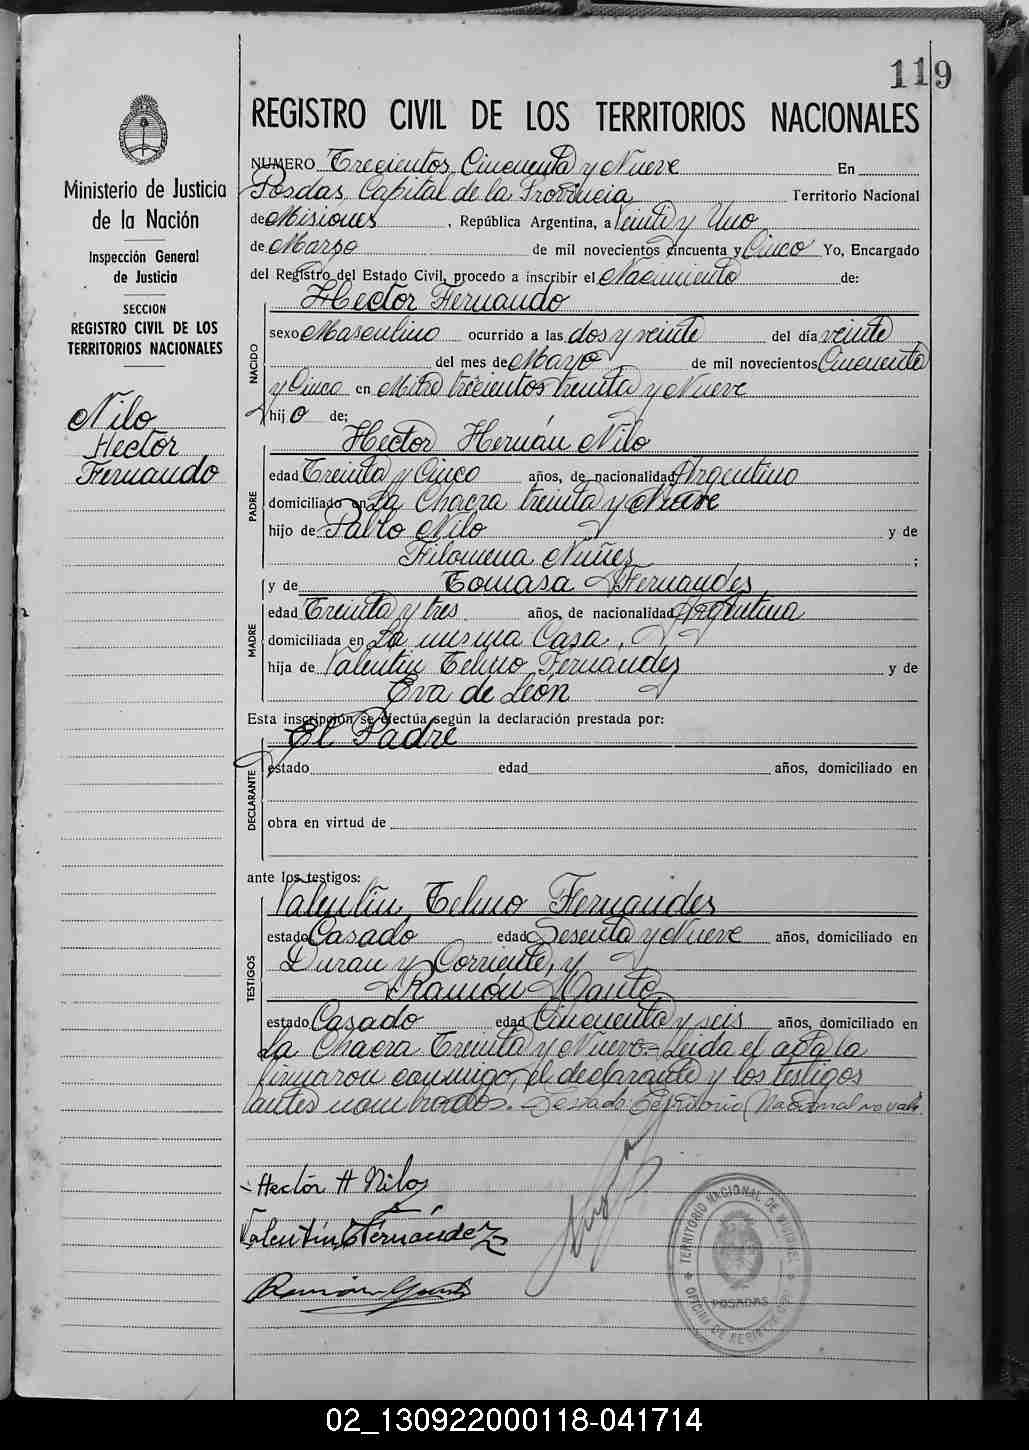 119
REGISTRO CIVIL DE LOS TERRITORIOS NACIONALES
Ministerio de Justicia
de la Nación
Inspección General
de Justicia
SECCION
REGISTRO CIVIL DE LOS
TERRITORIOS NACIONALES
Nilo
Hector
Fernando
NUMERO Trecientos Cincuenta y Nueve En
Posdas, Capital de la Provincia Territorio Nacional
de Misiones, República Argentina, a Veinti y Uno
de Marzo de mil novecientos cincuenta y Cinco Yo, Encargado
del Registro del Estado Civil, procedo a inscribir el Nacimiento de:
NACIDO
Hector Fernando
sexo Masculino ocurrido a las dos y veinte del día veinte
del mes de Mayo de mil novecientos Cincuenta
y Cinco en Mitre trecientos treinta y Nueve
hijo de:
PADRE
Hector Hernán Nilo
edad Treinta y Cinco años, de nacionalidad Argentino
domiciliado en La Chacra treinta y Nueve
hijo de Pablo Nilo y de
Filomena Nuñes ;
MADRE
y de Tomasa Fernandes
edad Treinta y tres años, de nacionalidad Argentina
domiciliada en La misma Casa.
hija de Valentin Telmo Fernandes y de
Eva de León
Esta inscripción se efectúa según la declaración prestada por:
DECLARANTE
El Padre
estado edad años, domiciliado en
obra en virtud de
ante los testigos:
TESTIGOS
Valentin Telmo Fernandes
estado Casado edad Sesenta y Nueve años, domiciliado en
Duran y Corriente, y
Ramón
estado Casado edad Cincuenta y seis años, domiciliado en
La Chacra Treinta y Nueve.- Leida el acta la
firmaron conmigo, el declarante y los testigos
antes nombrados.- Testado: Territorio Nacional no vale.
Hector H Nilo
Valentín T Fernández
Ramón
TERRITORIO NACIONAL DE MISIONES
POSADAS
OFICINA DE REGISTRO CIVIL
02_130922000118-041714